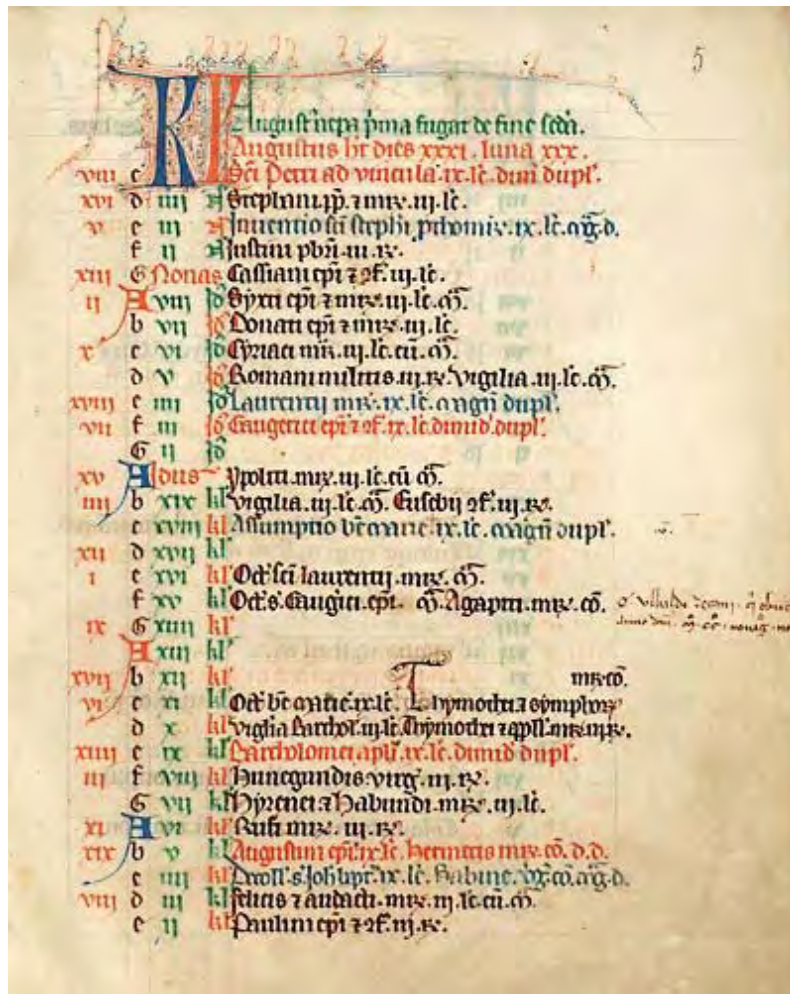 5
KL August' nepa p'ma fugat de fine sc'da.
Augustus ht dies xxxi. luna xxx.
viii c Sci Petri ad vincula. ix. lc. dimi dupl'.
xvi d iiii N Stephani pp. 7 mr. iii. lc.
v e iii N Inventio sci stephi pthomr. ix. lc. mg. d.
f ii N Iustini pbri. iii. r.
xiii G Nonas Cassiani epi 7 9f. iii. lc.
ii A viii Id Syxti epi 7 mr. iii. lc. 9m.
b vii Id Donati epi 7 mr. iii. lc.
x c vi Id Cyriaci mr. iii. lc. cu. 9m.
d v Id Romani militis. iii. r. Vigilia. iii. lc. 9m.
xviii e iiii Id Laurentij mr. ix. lc. magn dupl'.
vii f iii Id Gaugerici epi 7 9f. ix. lc. dimid' dupl'.
G ii Id
xv A Idus Ypoliti. mr. iii. lc. cu 9m.
iiii b xix kl' Vigilia. iii. lc. 9m. Eusebij 9f. iii. r.
c xviii kl' Assumptio be marie. ix. lc. magn dupl'.
xii d xvii kl'
i e xvi kl' Oct' sci laurentij. mr. 9m.
f xv kl' Oct' s. Gaug'ici. epi. 9m. Agapiti. mr. co.
ix G xiiii kl'
A xiii kl'
xvii b xii kl' mr co.
vi c xi kl' Oct' be marie. ix. lc. Thymothei 7 symphor'
d x kl' Vigilia Barthol'. iii. lc. Thymothei 7 apll'. mr. iii. r.
xiiii e ix kl' Bartholomei apli. ix. lc. dimid dupl'.
iii f viii kl' Hunegundis virg'. iii. r.
G vii kl' Hyrenei 7 Habundi. mr. iii. lc.
xi A vi kl' Rufi mr. iii. r.
xix b v kl' Augustini epi. ix lc. Hermetis mr. co. d. d.
c iiii kl' Decoll'. s. Joh bapt'. ix. lc. Sabine. vg. co. mg. d.
viii d iii kl' Felicis 7 audacti. mr. iii. lc. cu. 9m.
e ii kl' Paulini epi 7 9f. iii. r.